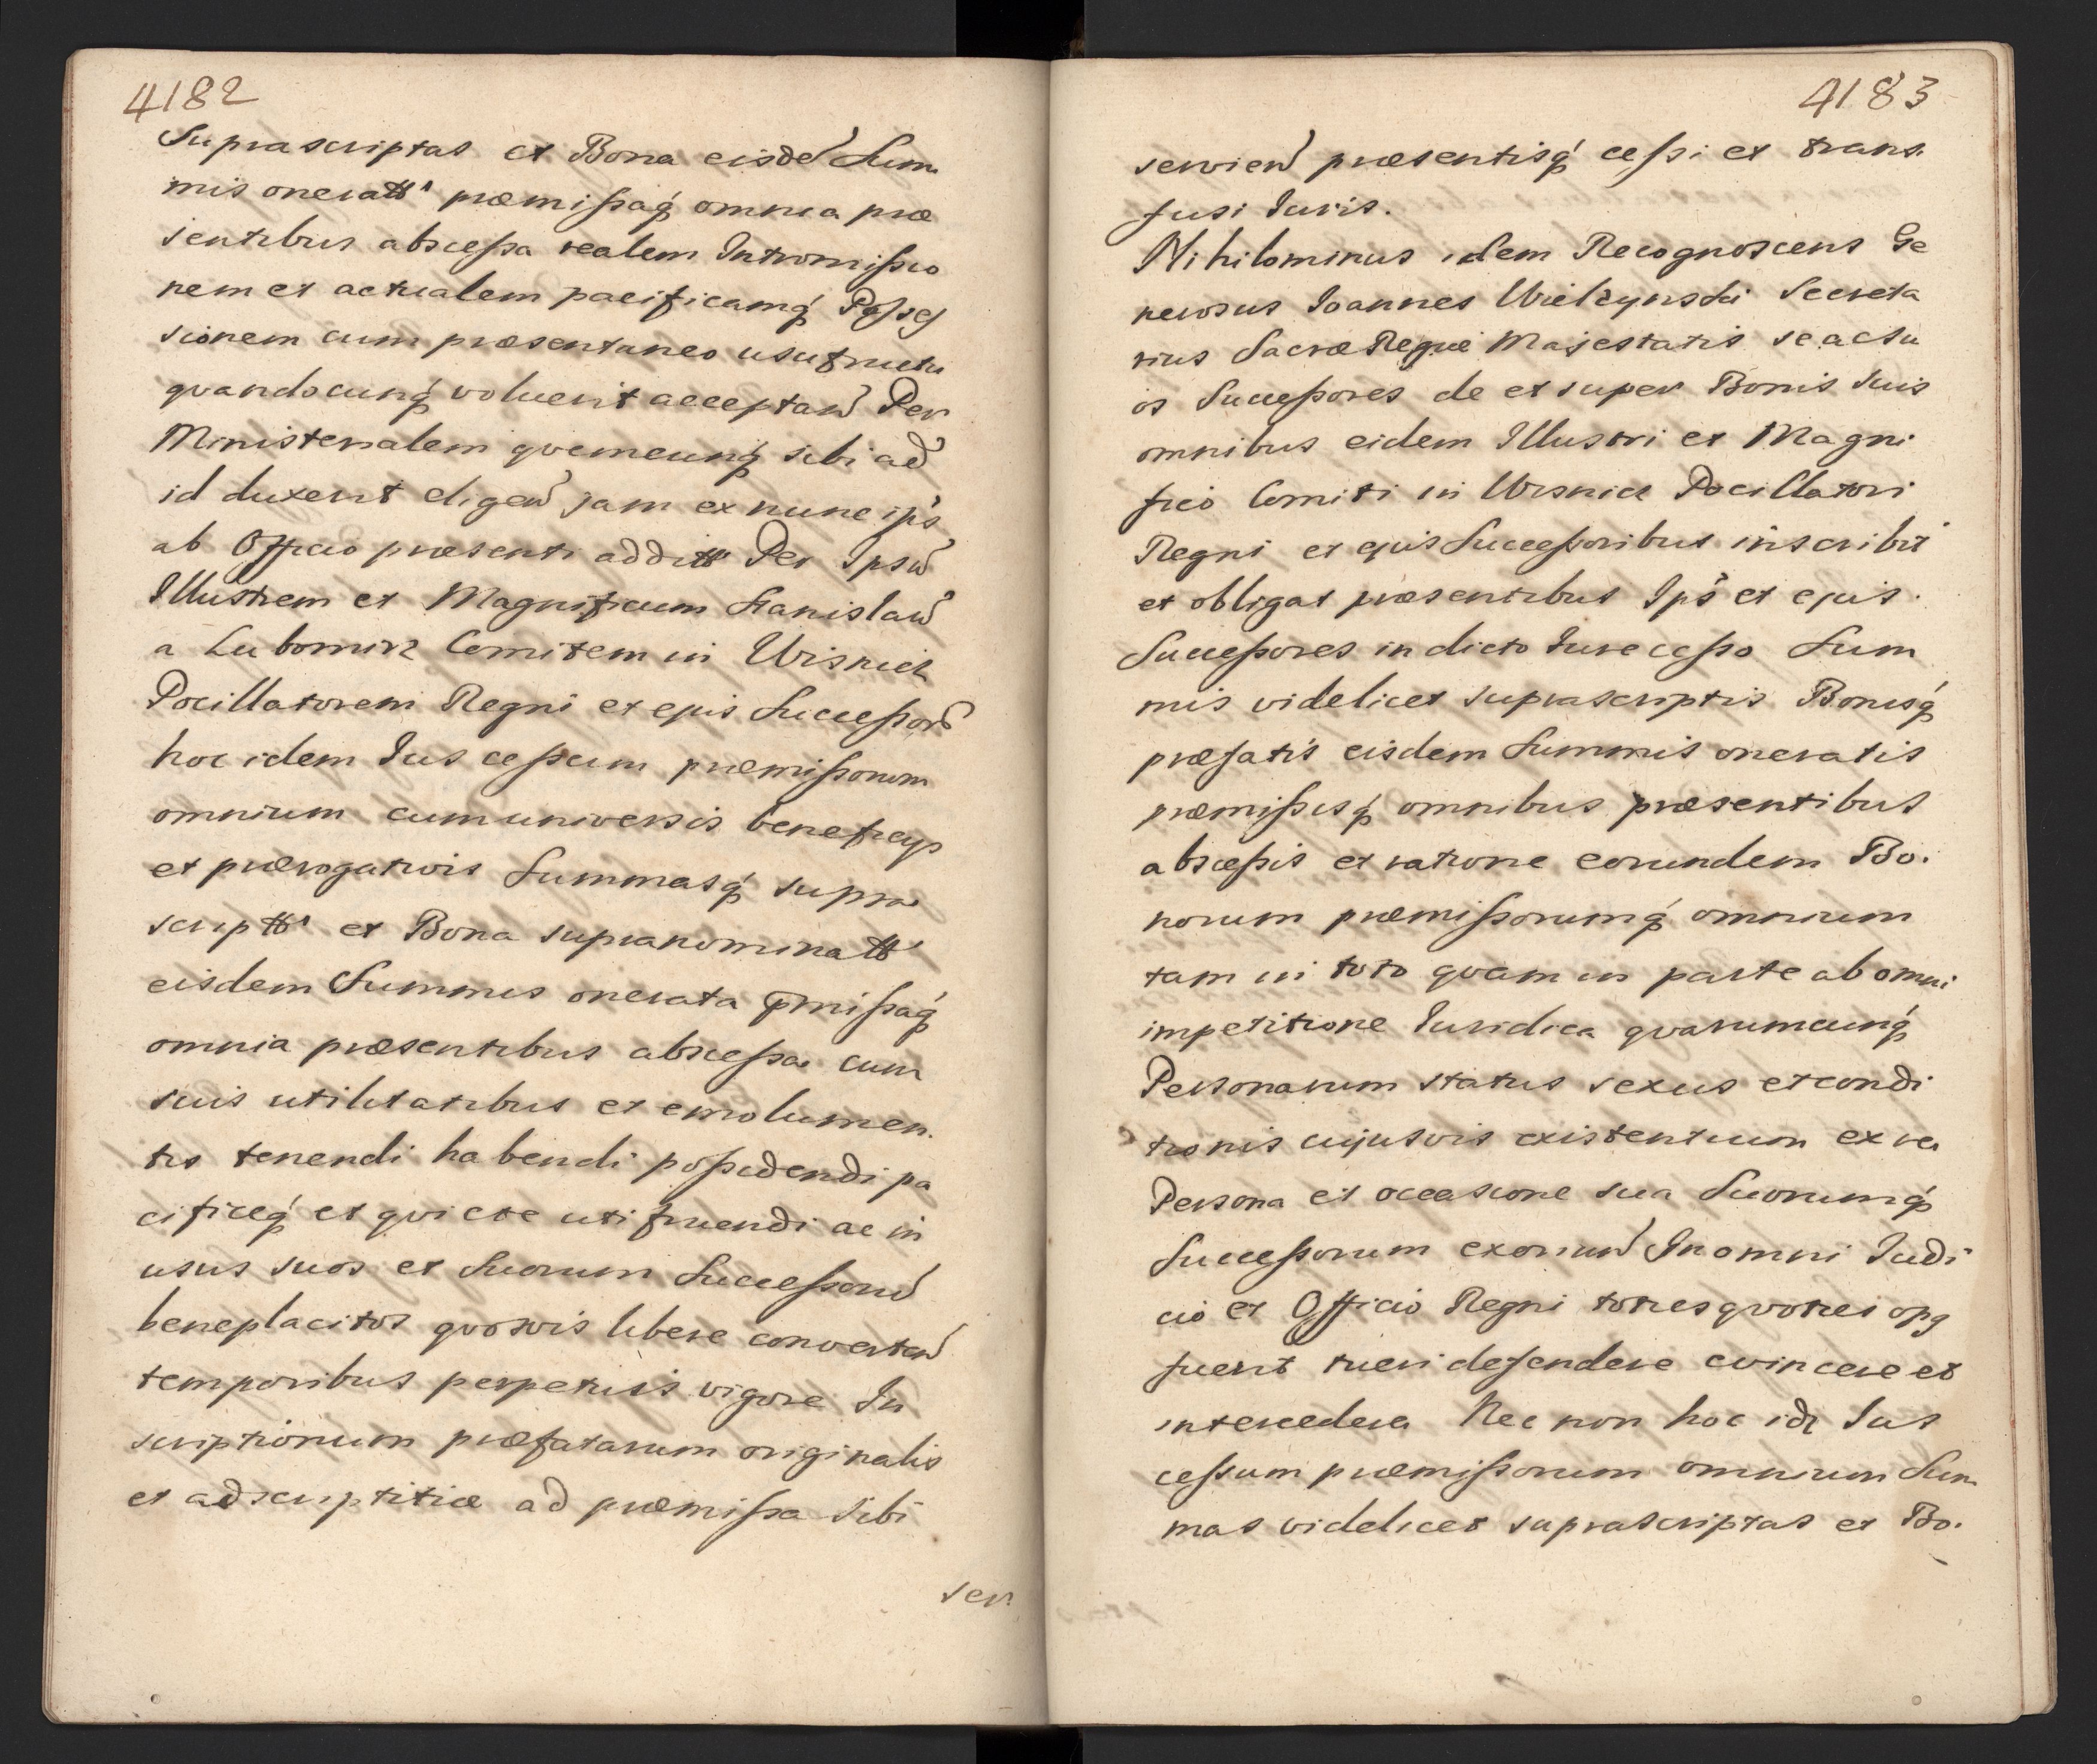 4182
Suprascriptas et Bona eisde Sum
mis oneratt præmißaq́ omnia præ
sentibus abscessa realem Intromißio
nem et actualem pacificamq́ Poßeß
sionem cum præsentaneo usufructu
qvandocunq́ voluerit acceptand Per
Ministerialem qvemcunq́ sibi ad
id duxerit eligend jam ex nunc ips
ab Officio præsenti additt Per Ipsu
Illustrem et Magnificum Stanislau
a Lubomirz Comitem in Wisnicz
Pocillatorem Regni et ejus Succeßores
hoc idem Ius ceßum præmißorum
omnium cum universis beneficys
et prærogativis Summasq́ supra
scriptt et Bona supranominatt
eisdem Summis onerata pmißaq́
omnia præsentibus absceßa cum
suis utilitatibus et emolumen.
tis tenendi habendi poßidendi pa
cificeq́ et qviete uti fruendi ac in
usus suos et Suorum Succeßoru
beneplacitos qvosvis libere convertend
temporibus perpetuis vigore In
scriptionum præfatarum originalis
et adscriptitiæ ad præmißa sibi
ser.
4183
serviend præsentisq́ ceßi et trans.
fusi Iuris.
Nihilominus idem Recognoscens Ge
nerosus Joannes Wielzynski Secreta
rius Sacræ Regiæ Majestatis se ac su
os Succeßores de et super Bonis suis
omnibus eidem Illustri et Magni
fico Comiti in Wisnicz Pocillatori
Regni et ejus Succeßoribus inscribit
et obligat præsentibus Ips et ejus.
Succeßores in dicto Iure ceßo Sum
mis videlicet suprascriptis Bonisq́
præfatis eisdem Summis oneratis
præmißisq́ omnibus præsentibus
absceßis et ratione eorundem Bo.
norum præmißorumq́ omnium
tam in toto qvam in parte ab omni
impetitione Iuridica qvarumcunq́
Personarum status sexus et condi
tionis cujusvis existentium ex re
Persona et occasione sua Suorumq́
Succeßorum exoriund In omni Iudi
cio et Officio Regni toties qvoties opg
fuerit tueri defendere evincere et
intercedere Nec non hoc idz Ius
ceßum præmißorum omnium Sum
mas videlicet suprascriptas et Bo.